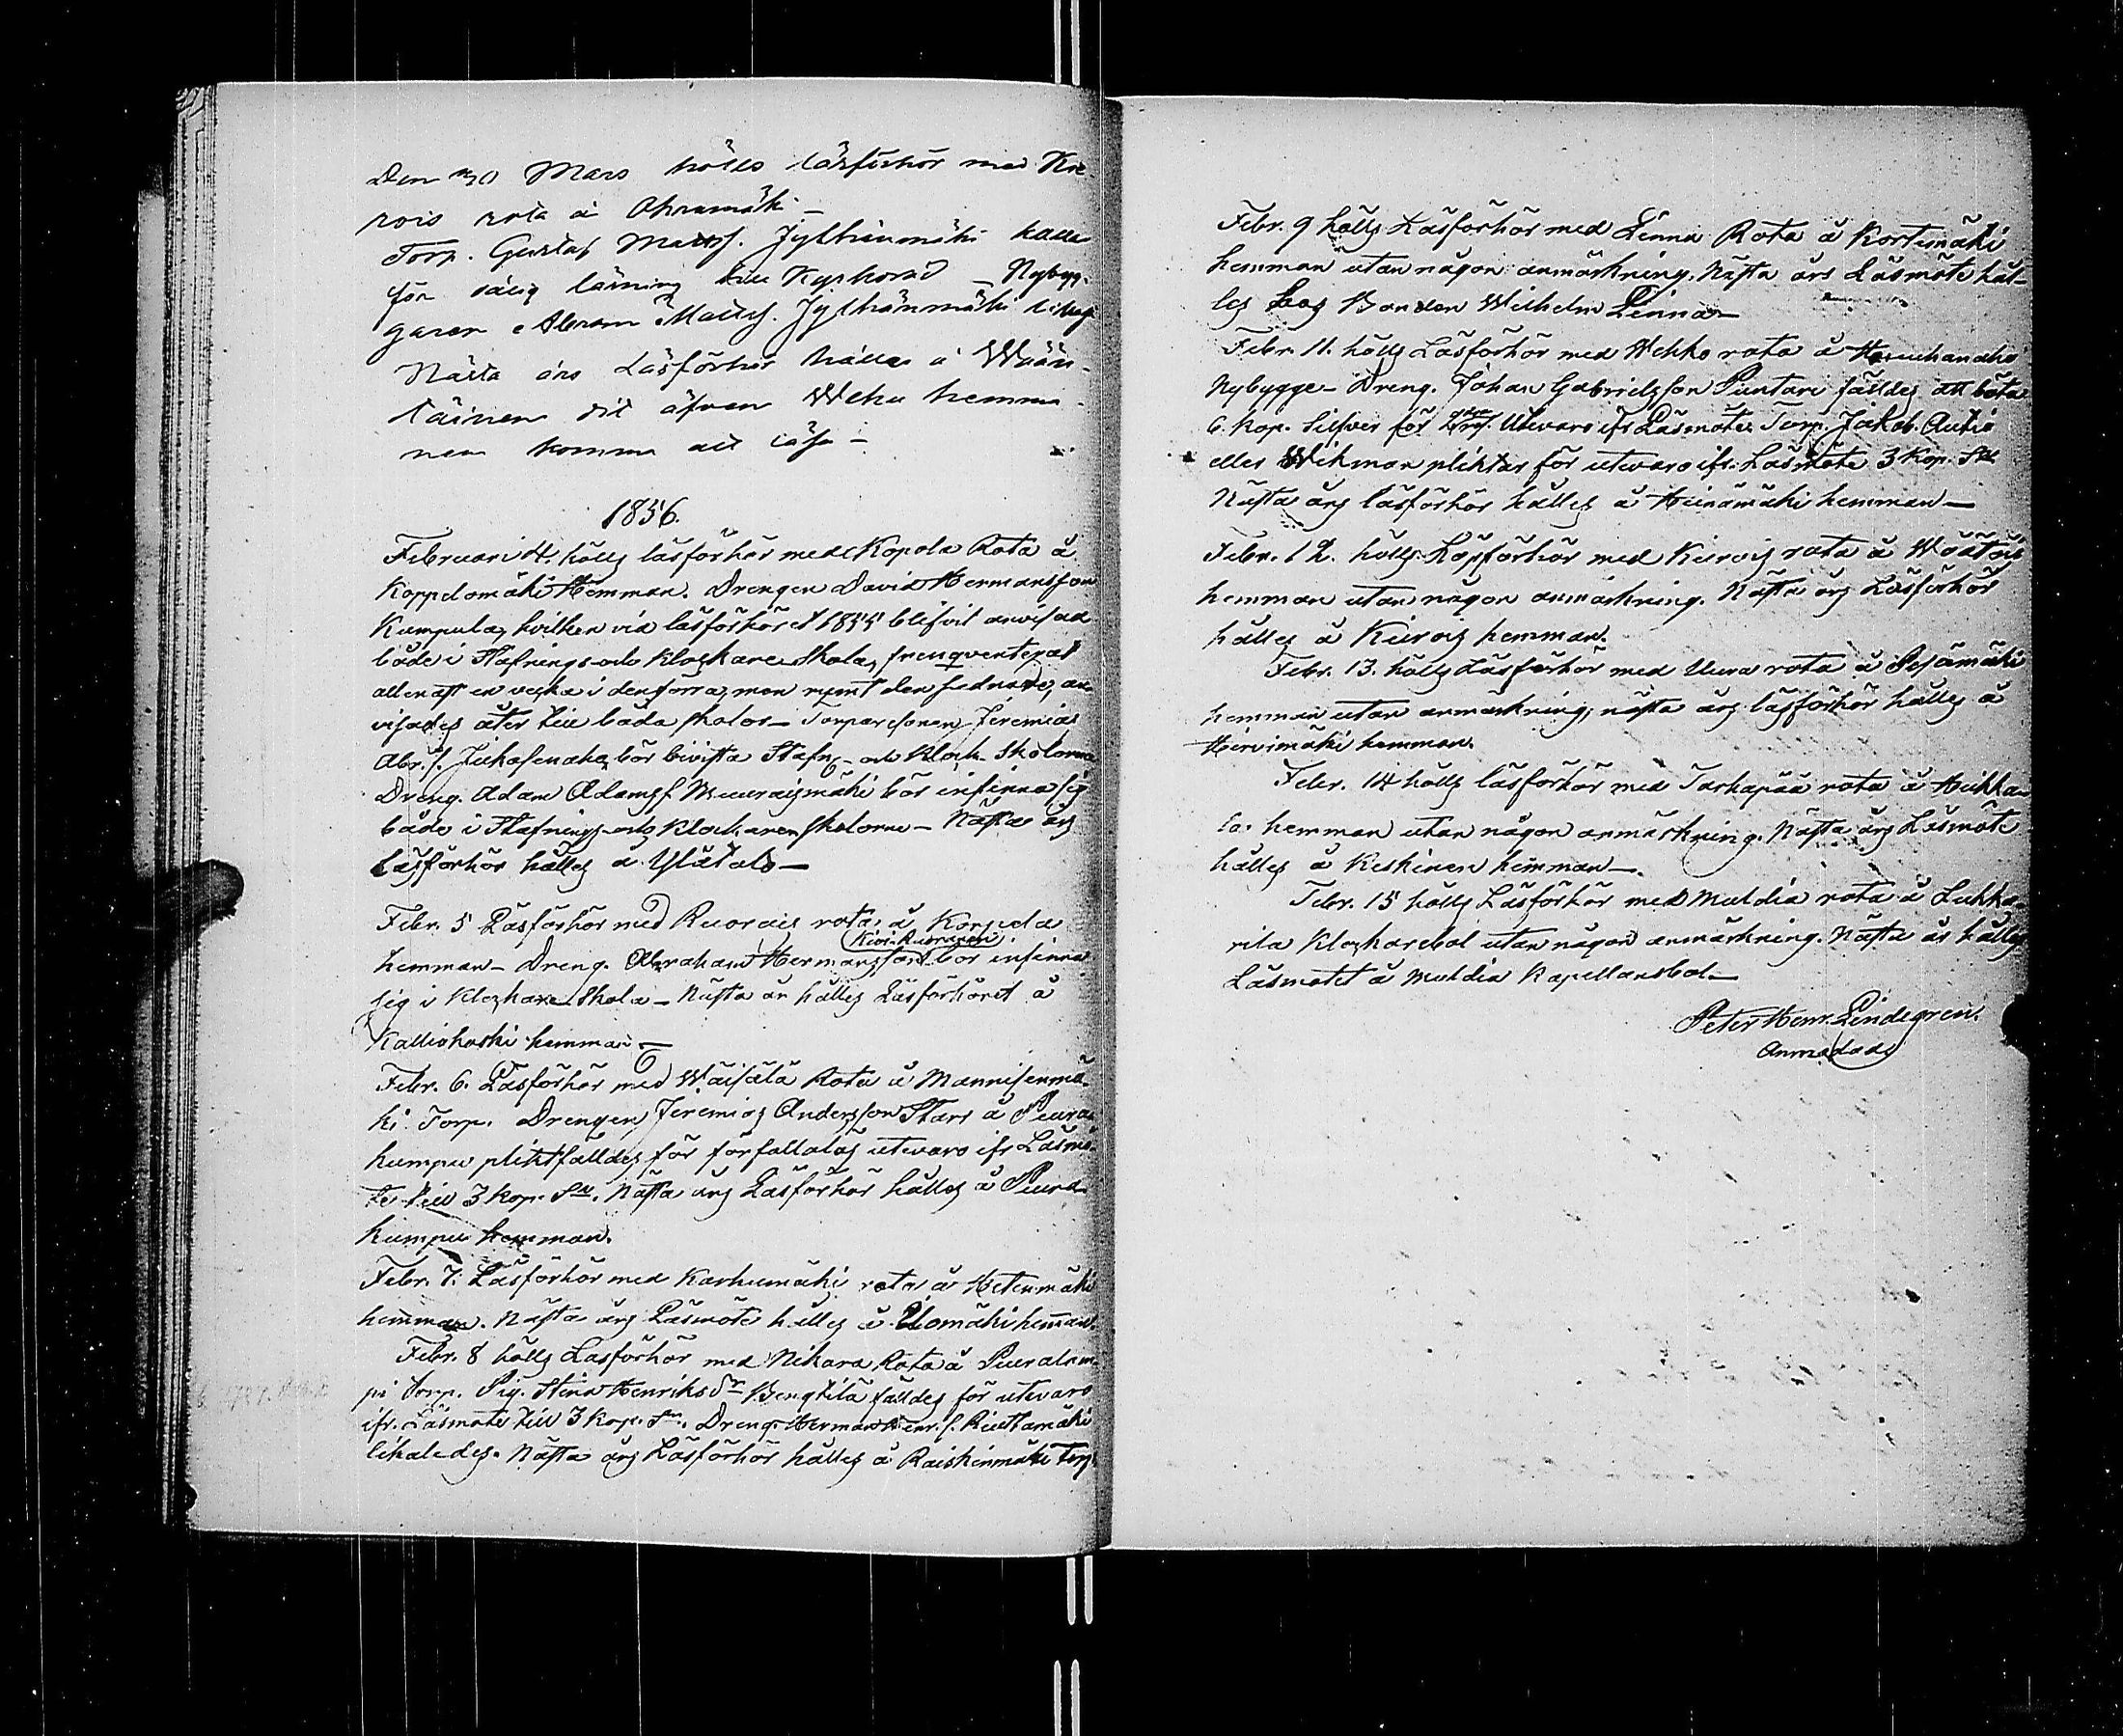 Den 30 Mars hölls läsförhör med Kie-
rois rota å Ohramäki –
Torp. Gustaf Mattsf. Jylhänmäki kallas
för sålig läsning till Kyrkoråd – Nybyg-
garen Abram Mattsf. Jylhänmäki likaså
Nästa års Läsförhör hålles å Wään-
täinen dit äfven Wehu hemma-
nen komma att läsa –
1856.
Februari 4. hölls läsförhör med Kopola Rota å
Koppelomäki Hemman. Drengen David Hermansson
Kumpula, hvilken vid läsförhöret 1855 blifvit anvisad
både i Stafnings- och Klockare Skola, frenqventerat
allenast en vecka i den förra, men rymt den sednare, an-
visades åter till båda skolor – Torparesonen Jeremias
Abr. s. Jukasenaho bör bivista Stafn. och Klock. Skolorna
Dreng. Adam Adamss. Meuraismäki bör infinna sig
både i Stafnings- och Klockaren skolorne – Nästa års
Läsförhör hålles å Ylätalo –
Febr. 5 Läsförhör med Ruorais rota å Korpela
Kivi-Ruorainen
hemman – Dreng. Abraham Hermansson bör infinna
sig i Klockare Skola – Nästa år hålles Läsförhöret å
Kalliokoski hemman –
Febr. 6. Läsförhör med Wäisälä Rota å Mannisenmä-
ki Torp. Drengen Jeremias Andersson Starr å Peura-
kumpu pliktfälldes för förfallolös utevaro ifr Läsmö-
te till 3 Kop. Sr. Nästa års Läsförhör hålles å Peura-
kumpu hemman.
Febr. 7. Läsförhör med Karhumäki rota å Hetenmäki
hemman. Nästa års Läsmöte hålles å Uomäki hemman.
Febr. 8 hölls Läsförhör med Nikara Rota å Peuralam-
pi Torp. Pig. Stina Henriksdr Bengtilä fälldes för utevaro
ifr. Läsmöte till 3 Kop. Sr. Dreng. Herman Henr. s. Riuttamäki
likaledes. Nästa års Läsförhör hålles å Raiskinmäki Torp.
Febr. 9 hölls Läsförhör med Linna Rota å Kortemäki
hemman utan någon anmärkning. Nästa års Läsmöte hål-
les hos Bonden Wilhelm Linna –
Febr. 11. hölls Läsförhör med Wehko rota å
Nybygge – Dreng. Johan Gabrielsson Puntari fälldes att böta
6 Kop. Silfver för utevaro ifr Läsmöte Torp. Jakob Autio
eller Wikman pliktar för utevaro ifr. Läsmöte 3 Kop. Sr
Nästa års läsförhör hålles å Heinämäki hemman –
Febr. 12. hölls Läsförhör med Kierois rota å Wäätäis
hemman utan någon anmärkning. Nästa års Läsförhör
hålles å Kierois hemman.
Febr. 13. hölls Läsförhör med Uura rota å Pesämäki
hemman utan anmärkning, nästa års läsförhör hålles å
Hirvimäki hemman.
Febr. 14 hölls läsförhör med Tarhapää rota å Heikka-
la hemman utan någon anmärkning. Nästa års Läsmöte
hålles å Keskinen hemman –
Febr. 15 hölls Läsförhör med Muldia rota å Lukka-
rila Klockarebol utan någon anmärkning. Nästa år hålles
Läsmötet å Muldia Kapellansbol –
Peter Henr. Lindegren.